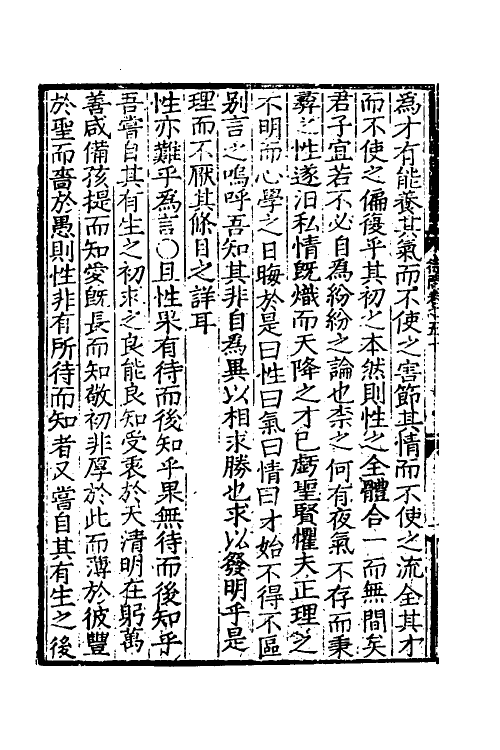 為才有能養其氣而不使之害節其情而不使之流全其才
而不使之偏復乎其初之本然則性之全體合一而無間矣
君子宜若不必自為紛紛之論也柰之何有夜氣不存而秉
彛之性遂汨私情旣熾而天降之才已虧聖賢懼夫正理之
不明而心學之日晦於是曰性曰氣曰情曰才始不得不區
别言之嗚呼吾知其非自為異以相求勝也求以發明乎是
理而不厭其條目之詳耳
性亦難乎為言〇且性果有待而後知乎果無待而後知乎
吾嘗自其有生之初求之良能良知受衷於天清明在躬萬
善咸備孩提而知愛旣長而知敬初非厚於此而薄於彼豐
於聖而嗇於愚則性非有所待而知者又嘗自其有生之後